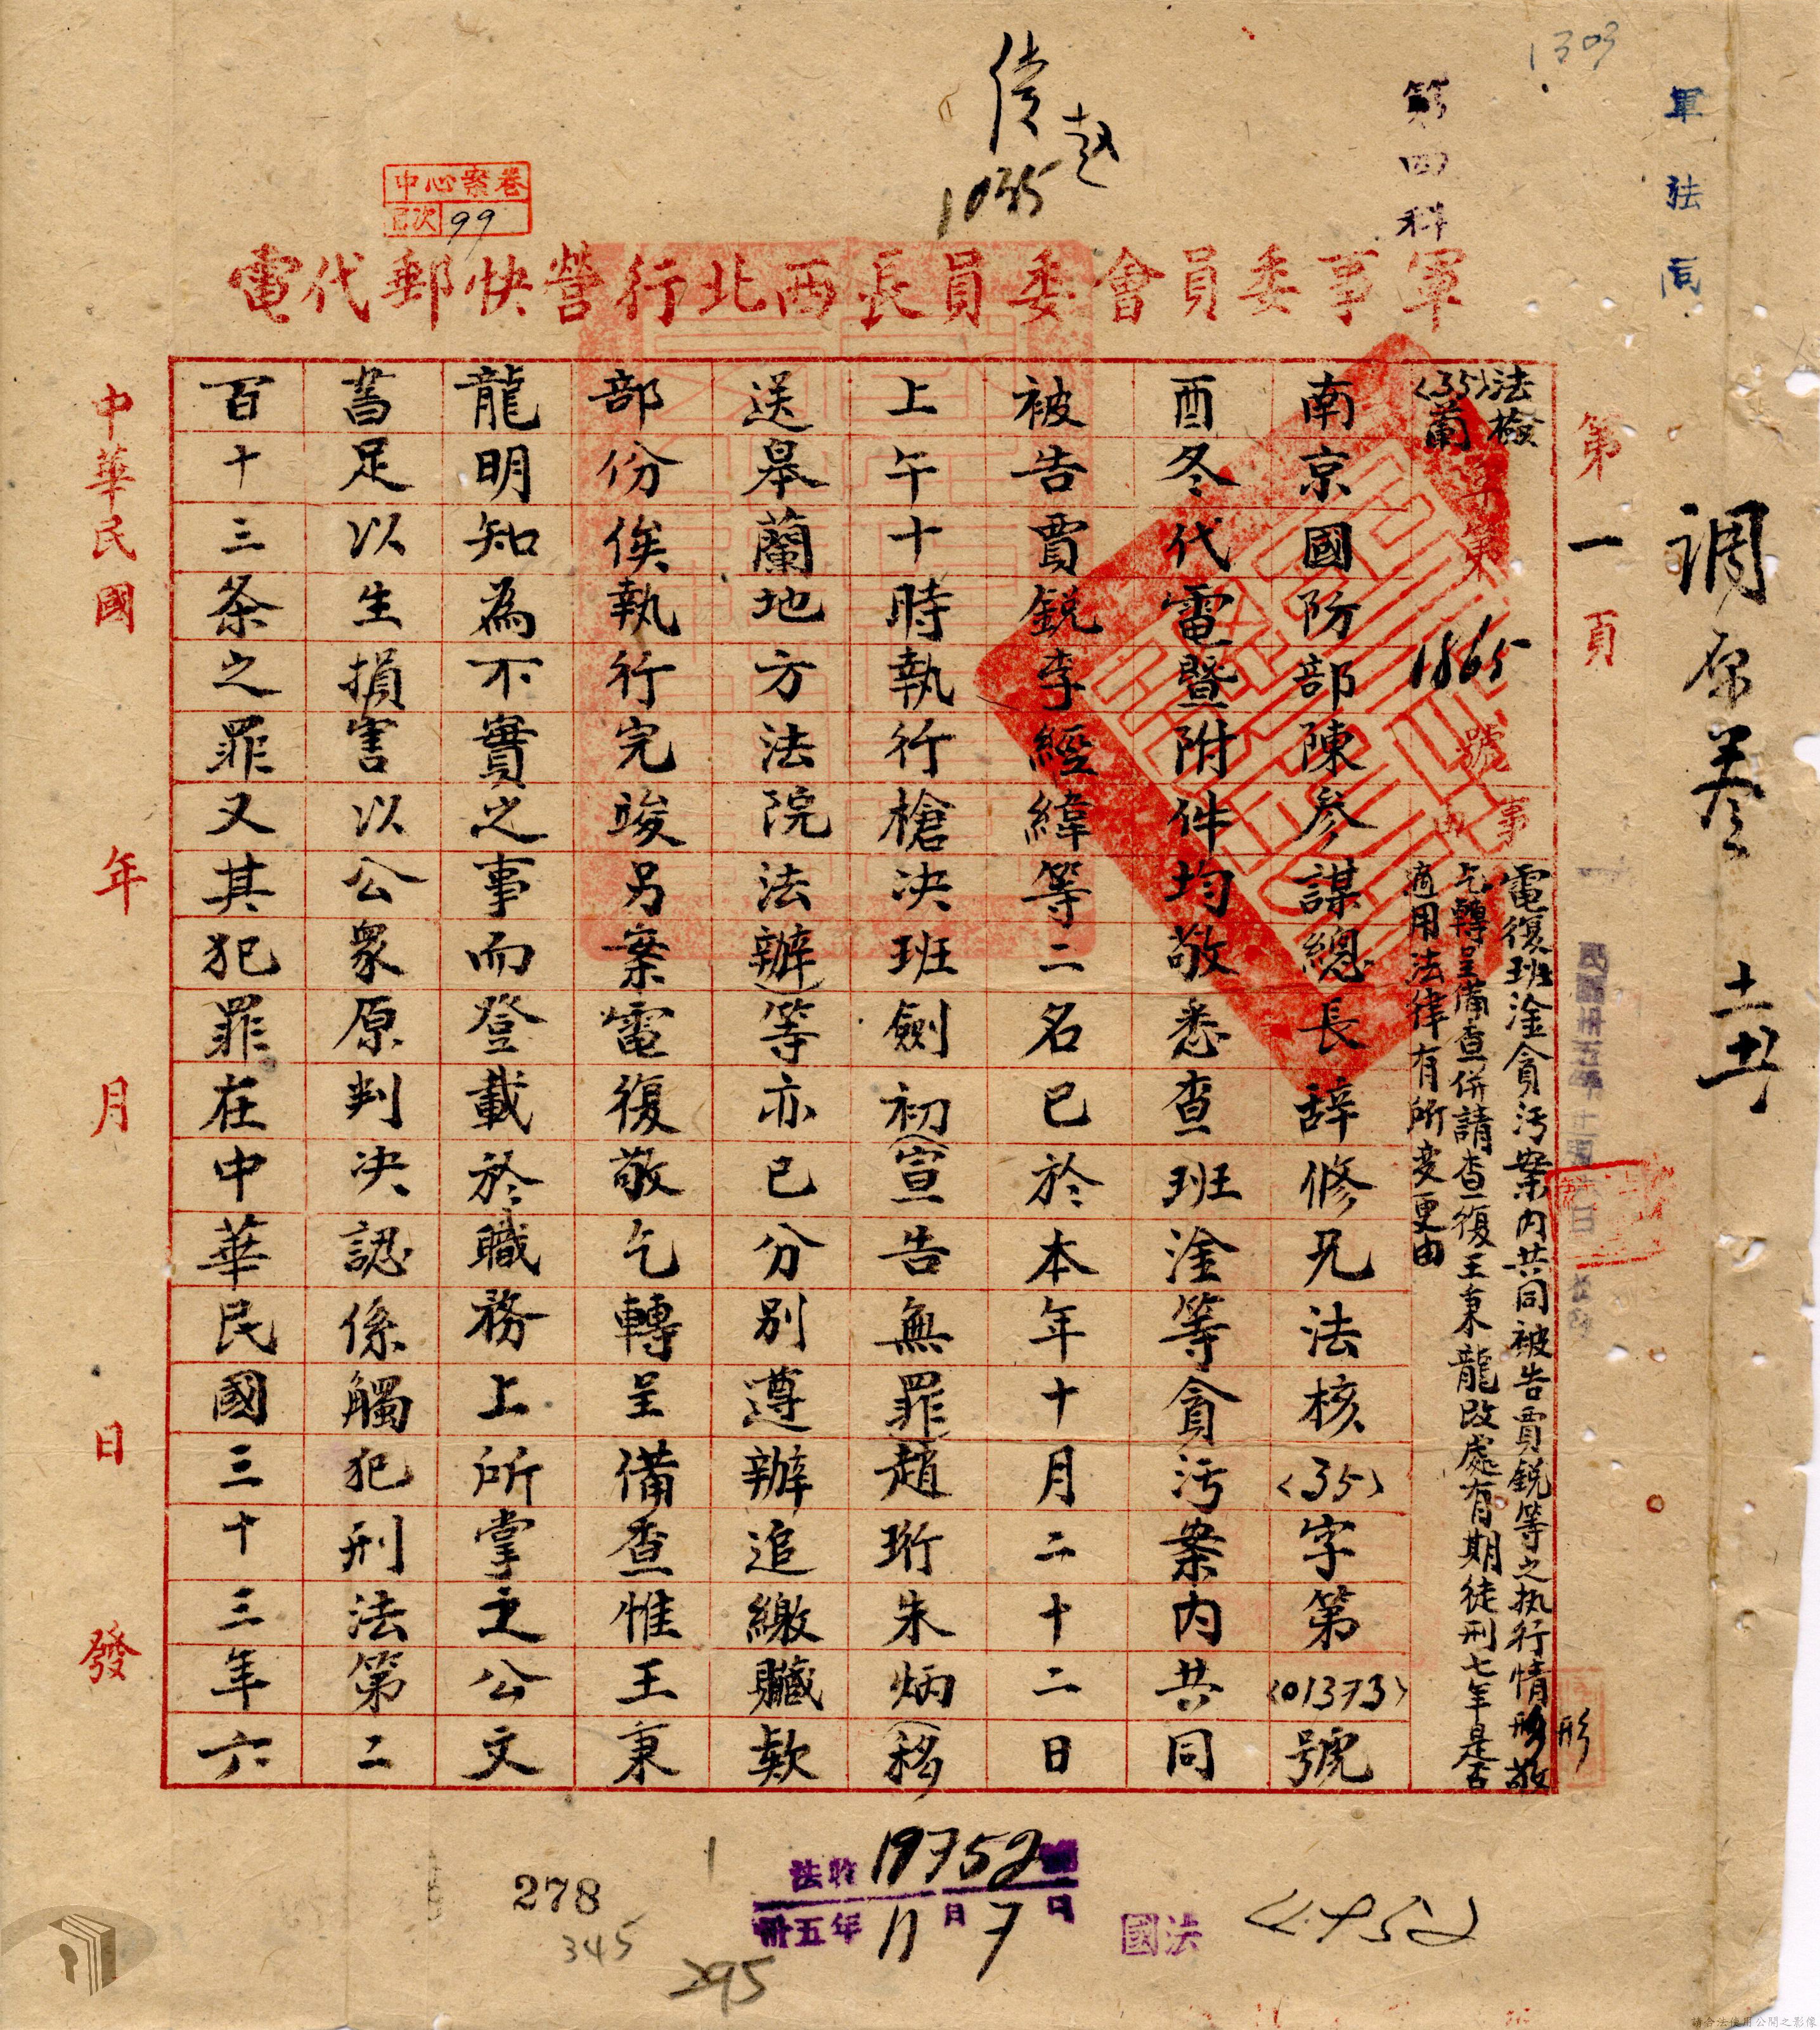 1303
軍法司
第四科
1035
中心案卷
頁次 99
軍事委員會委員長西北行營快郵代電
調原卷
第一頁
法檢(35)蘭字第1865號
事由
電復班淦貪污案內共同被告賈銳等之执行情形敬
乞轉呈備查併請查復王秉龍改處有期徒刑七年是否
適用法律有所变更由
形
南京國防部陳參謀總長辭修兄法核(35)字第(01373)號
酉冬代電暨附件均敬悉查班淦等貪污案內共同
被告賈銳李經緯等二名已於本年十月二十二日
上午十時執行槍决班劍初(宣告無罪)趙珩朱炳(移
送皋蘭地方法院法辦)等亦已分別遵辦追繳贓欵
部份俟執行完竣另案電復敬乞轉呈備查惟王秉
龍明知為不實之事而登載於職務上所掌之公文
書足以生損害以公眾原判决認係觸犯刑法第二
百十三条之罪又其犯罪在中華民國三十三年六
中華民國 年 月 日發
278
345
295
法收 19752
卅五年 11月7日
國法
4952
請合法使用公開之影像